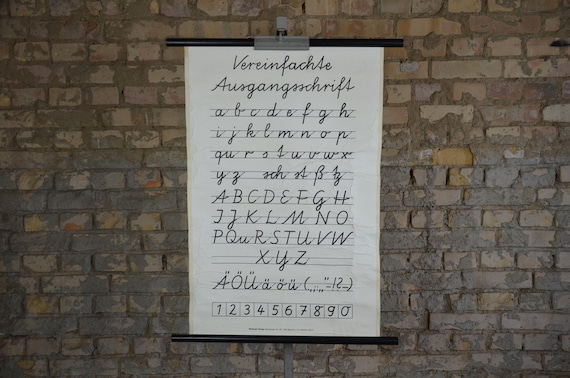 Vereinfachte
Ausgangsschrift
a b c d e f g h
i j k l m n o p
qu r s t u v w x
y z sch st ß tz
A B C D E F G H
I J K L M N O
P Qu R S T U V W
X Y Z
Ä Ö Ü ä ö ü ( „ . : , " - ! ? - )
1 2 3 4 5 6 7 8 9 0